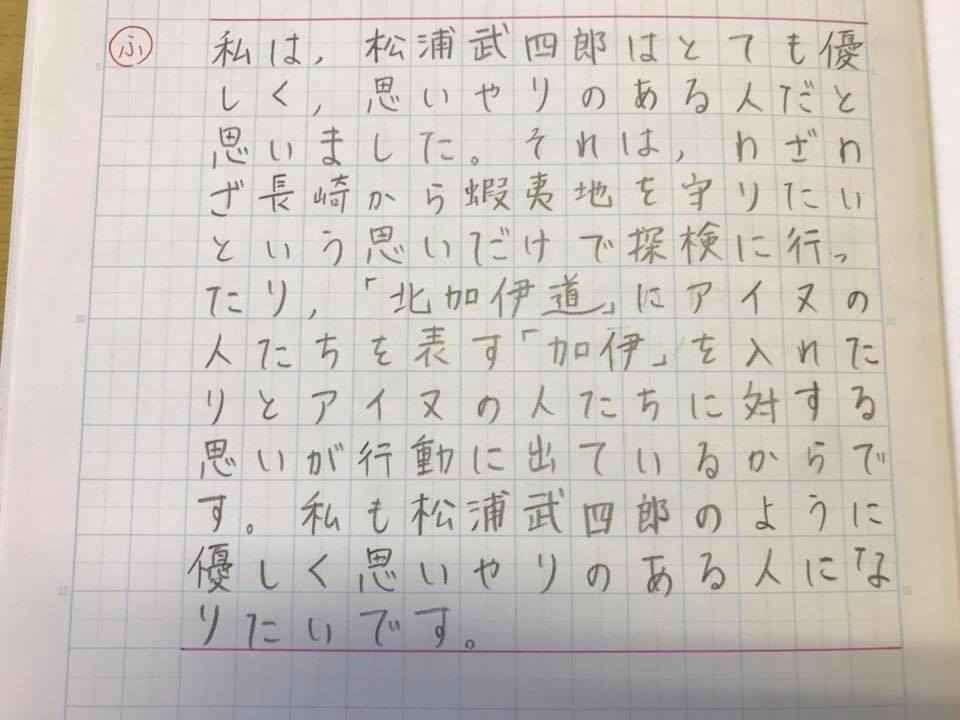 ふ
私は,松浦武四郎はとても優
しく,思いやりのある人だと
思いました。それは,わざわ
ざ長崎から蝦夷地を守りたい
という思いだけで探検に行っ
たり,「北加伊道」にアイヌの
人たちを表す「加伊」を入れた
りとアイヌの人たちに対する
思いが行動に出ているからで
す。私も松浦武四郎のように
優しく思いやりのある人にな
りたいです。
5
10
15
5
10
15